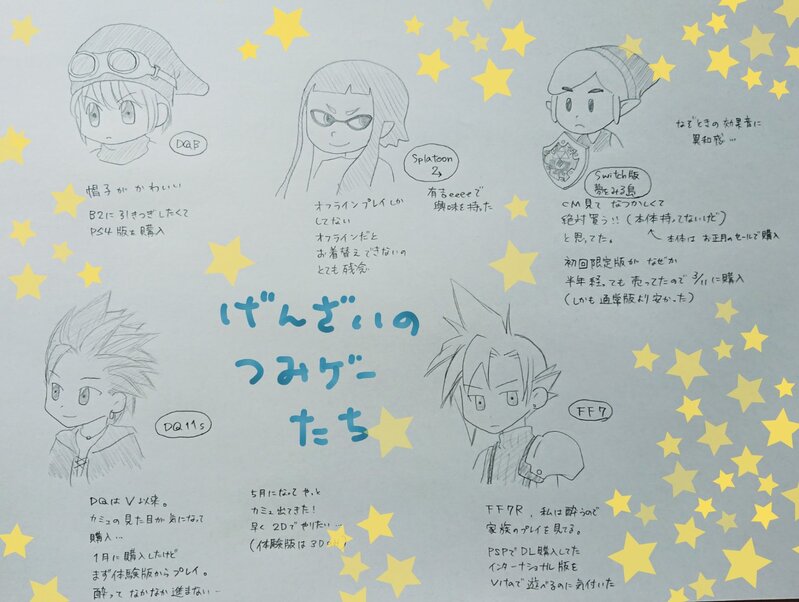 DQB
帽子が かわいい
B2に引きつぎしたくて
PS4版を購入
Splatoon
2
オフラインプレイしか
してない
オフラインだと
お着替えできないの
とても残念
有るeeeeで
興味を持った
なぞときの効果音に
異和感…
Switch版
夢をみる島
CM見て なつかしくて
絶対買う!!(本体持ってないけど)
と思ってた。
本体は お正月のセールで購入
初回限定版が なぜか
半年経っても 売ってたので 3/11 に購入
(しかも通常版より安かった)
げんざいの
つみゲー
たち
DQ11s
DQはV以来。
カミュの見た目が気になって
購入…
1月に購入したけど
まず体験版からプレイ。
酔って なかなか進まない…
5月になって やっと
カミュ出てきた!
早く 2Dで やりたい…
(体験版は3D
FF7
FF7R、私は酔うので
家族のプレイを見てる。
PSPでDL購入してた
インターナショナル版を
Vitaで遊べるのに気付いた